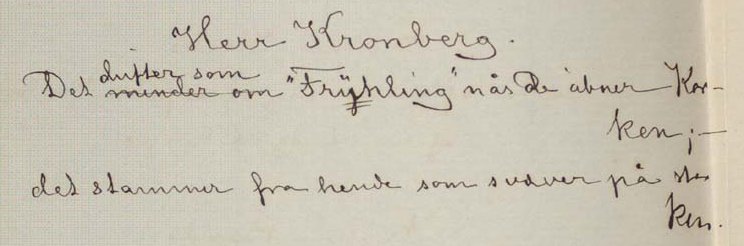 Herr Kronberg.
dufter som
Det minder om "Fryhling" når De åbner Kor-
ken; –
det stammer fra hende som svæver på stor
ken.